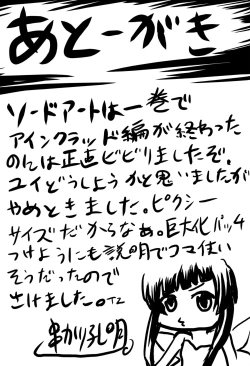 あとーがき
ソードアートは一巻で
アインクラッド編が終わった
のんは正直ビビりましたぞ。
ユイどうしようかと思いましたが
やめときました。ピクシー
サイズだからなぁ。巨大化パッチ
つけようにも説明でコマ使い
そうだったので
さけました。
串かり孔明